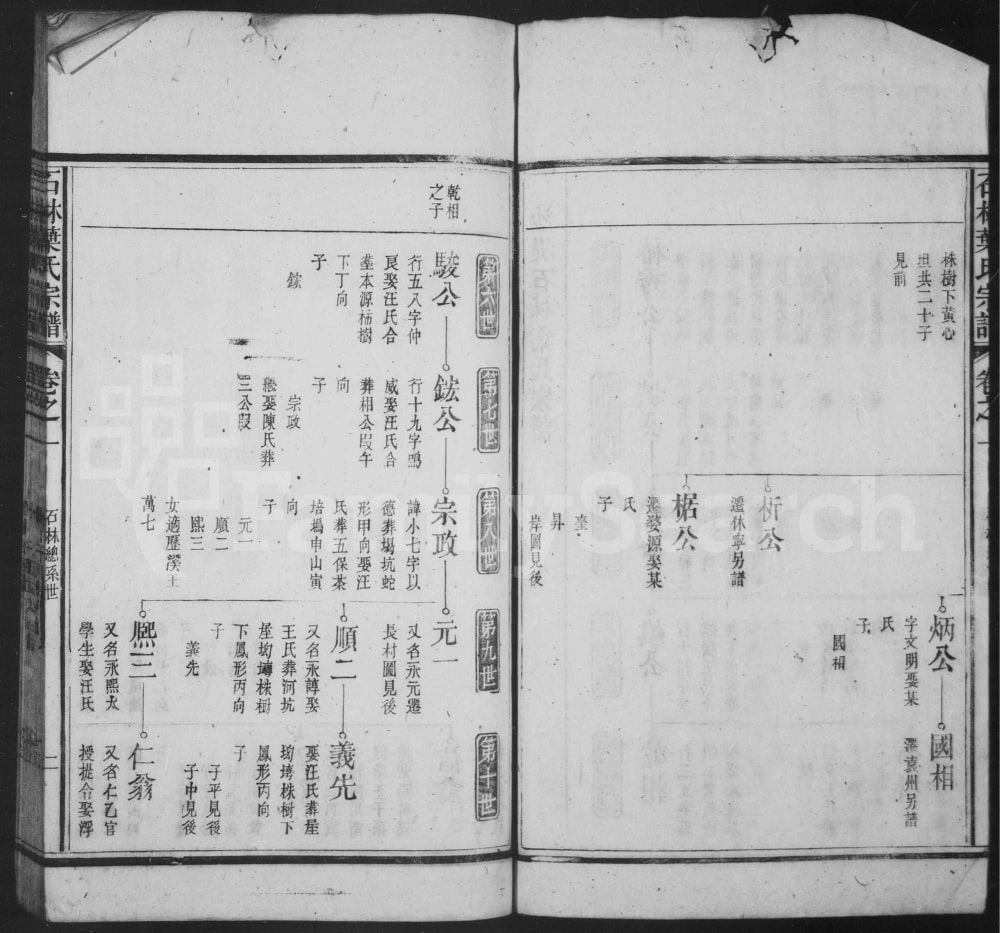 石林葉氏宗譜
卷之一
林樹下黃心
坦共二十子
見前
炳公
字文明娶某
氏
子
國相
國相
遷袁州另譜
析公
遷休寧另譜
椐公
遷婺源娶某
氏
子
垄
昇
岸圖見後
第六世
第七世
第八世
第九世
第十世
乾相
之子
駿公
行五八字仲
良娶汪氏合
塟本源柿樹
下丁向
子
鋐
鋐公
行十九字鳴
威娶汪氏合
葬相公塅午
向
子
宗政
娶陳氏葬
三公塅
宗政
諱小七字以
德葬塌坑蛇
形甲向娶汪
氏葬五保茶
培塢申山寅
向
子
元一
順二
熙三
女適歷溪王
萬七
元一
又名永元遷
長村圖見後
順二
又名永諄娶
王氏葬河坑
屋坳塼株樹
下鳳形丙向
子
義先
義先
娶汪氏葬屋
坳塼株樹下
鳳形丙向
子
子平見後
子中見後
熙三
又名永熙太
學生娶汪氏
仁翁
又名仁乙官
授提令娶浮
石林葉氏宗譜
卷之一
石林總系世
二
FamilySearch